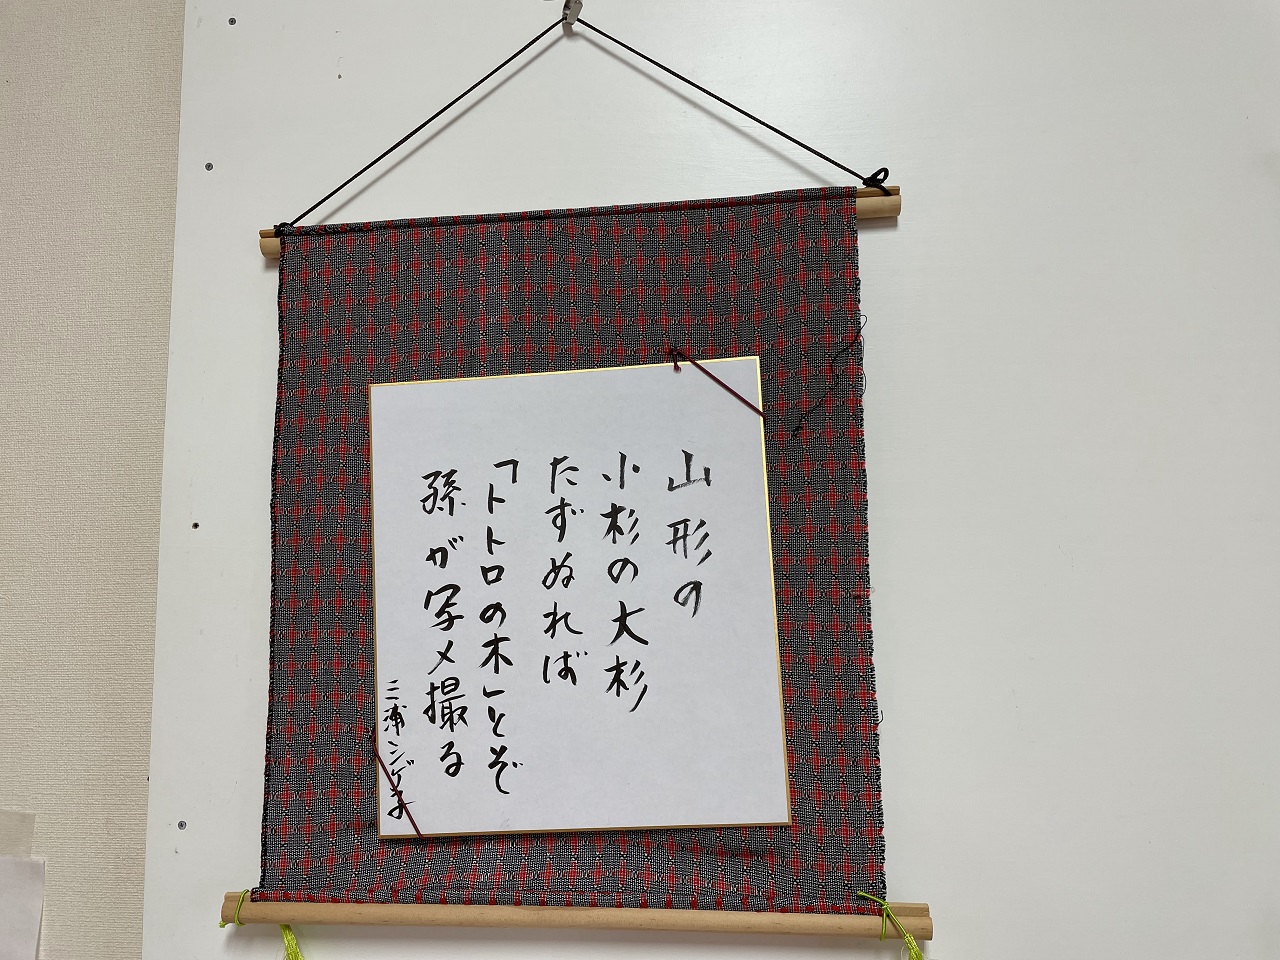 山形の
小杉の大杉
たずぬれば
「トトロの木」とぞ
孫が写メ撮る
三浦シゲ子